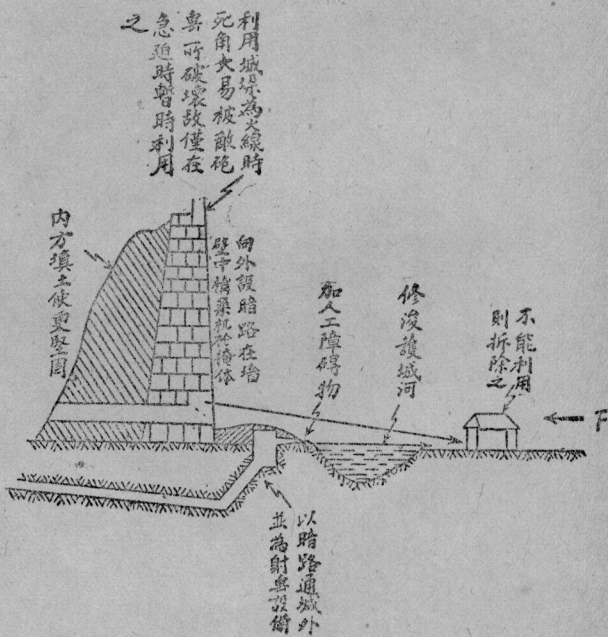 利用城垜為火線時
死角大易被敵砲
毀所破壞故僅在
急迫時暫時利用
之
內方填土使更堅固
向外設暗路在墙
壁中構築机枪掩体
加人工障碍物
修浚護城河
不能利用
則拆除之
F
以暗路通城外
並為射擊設備